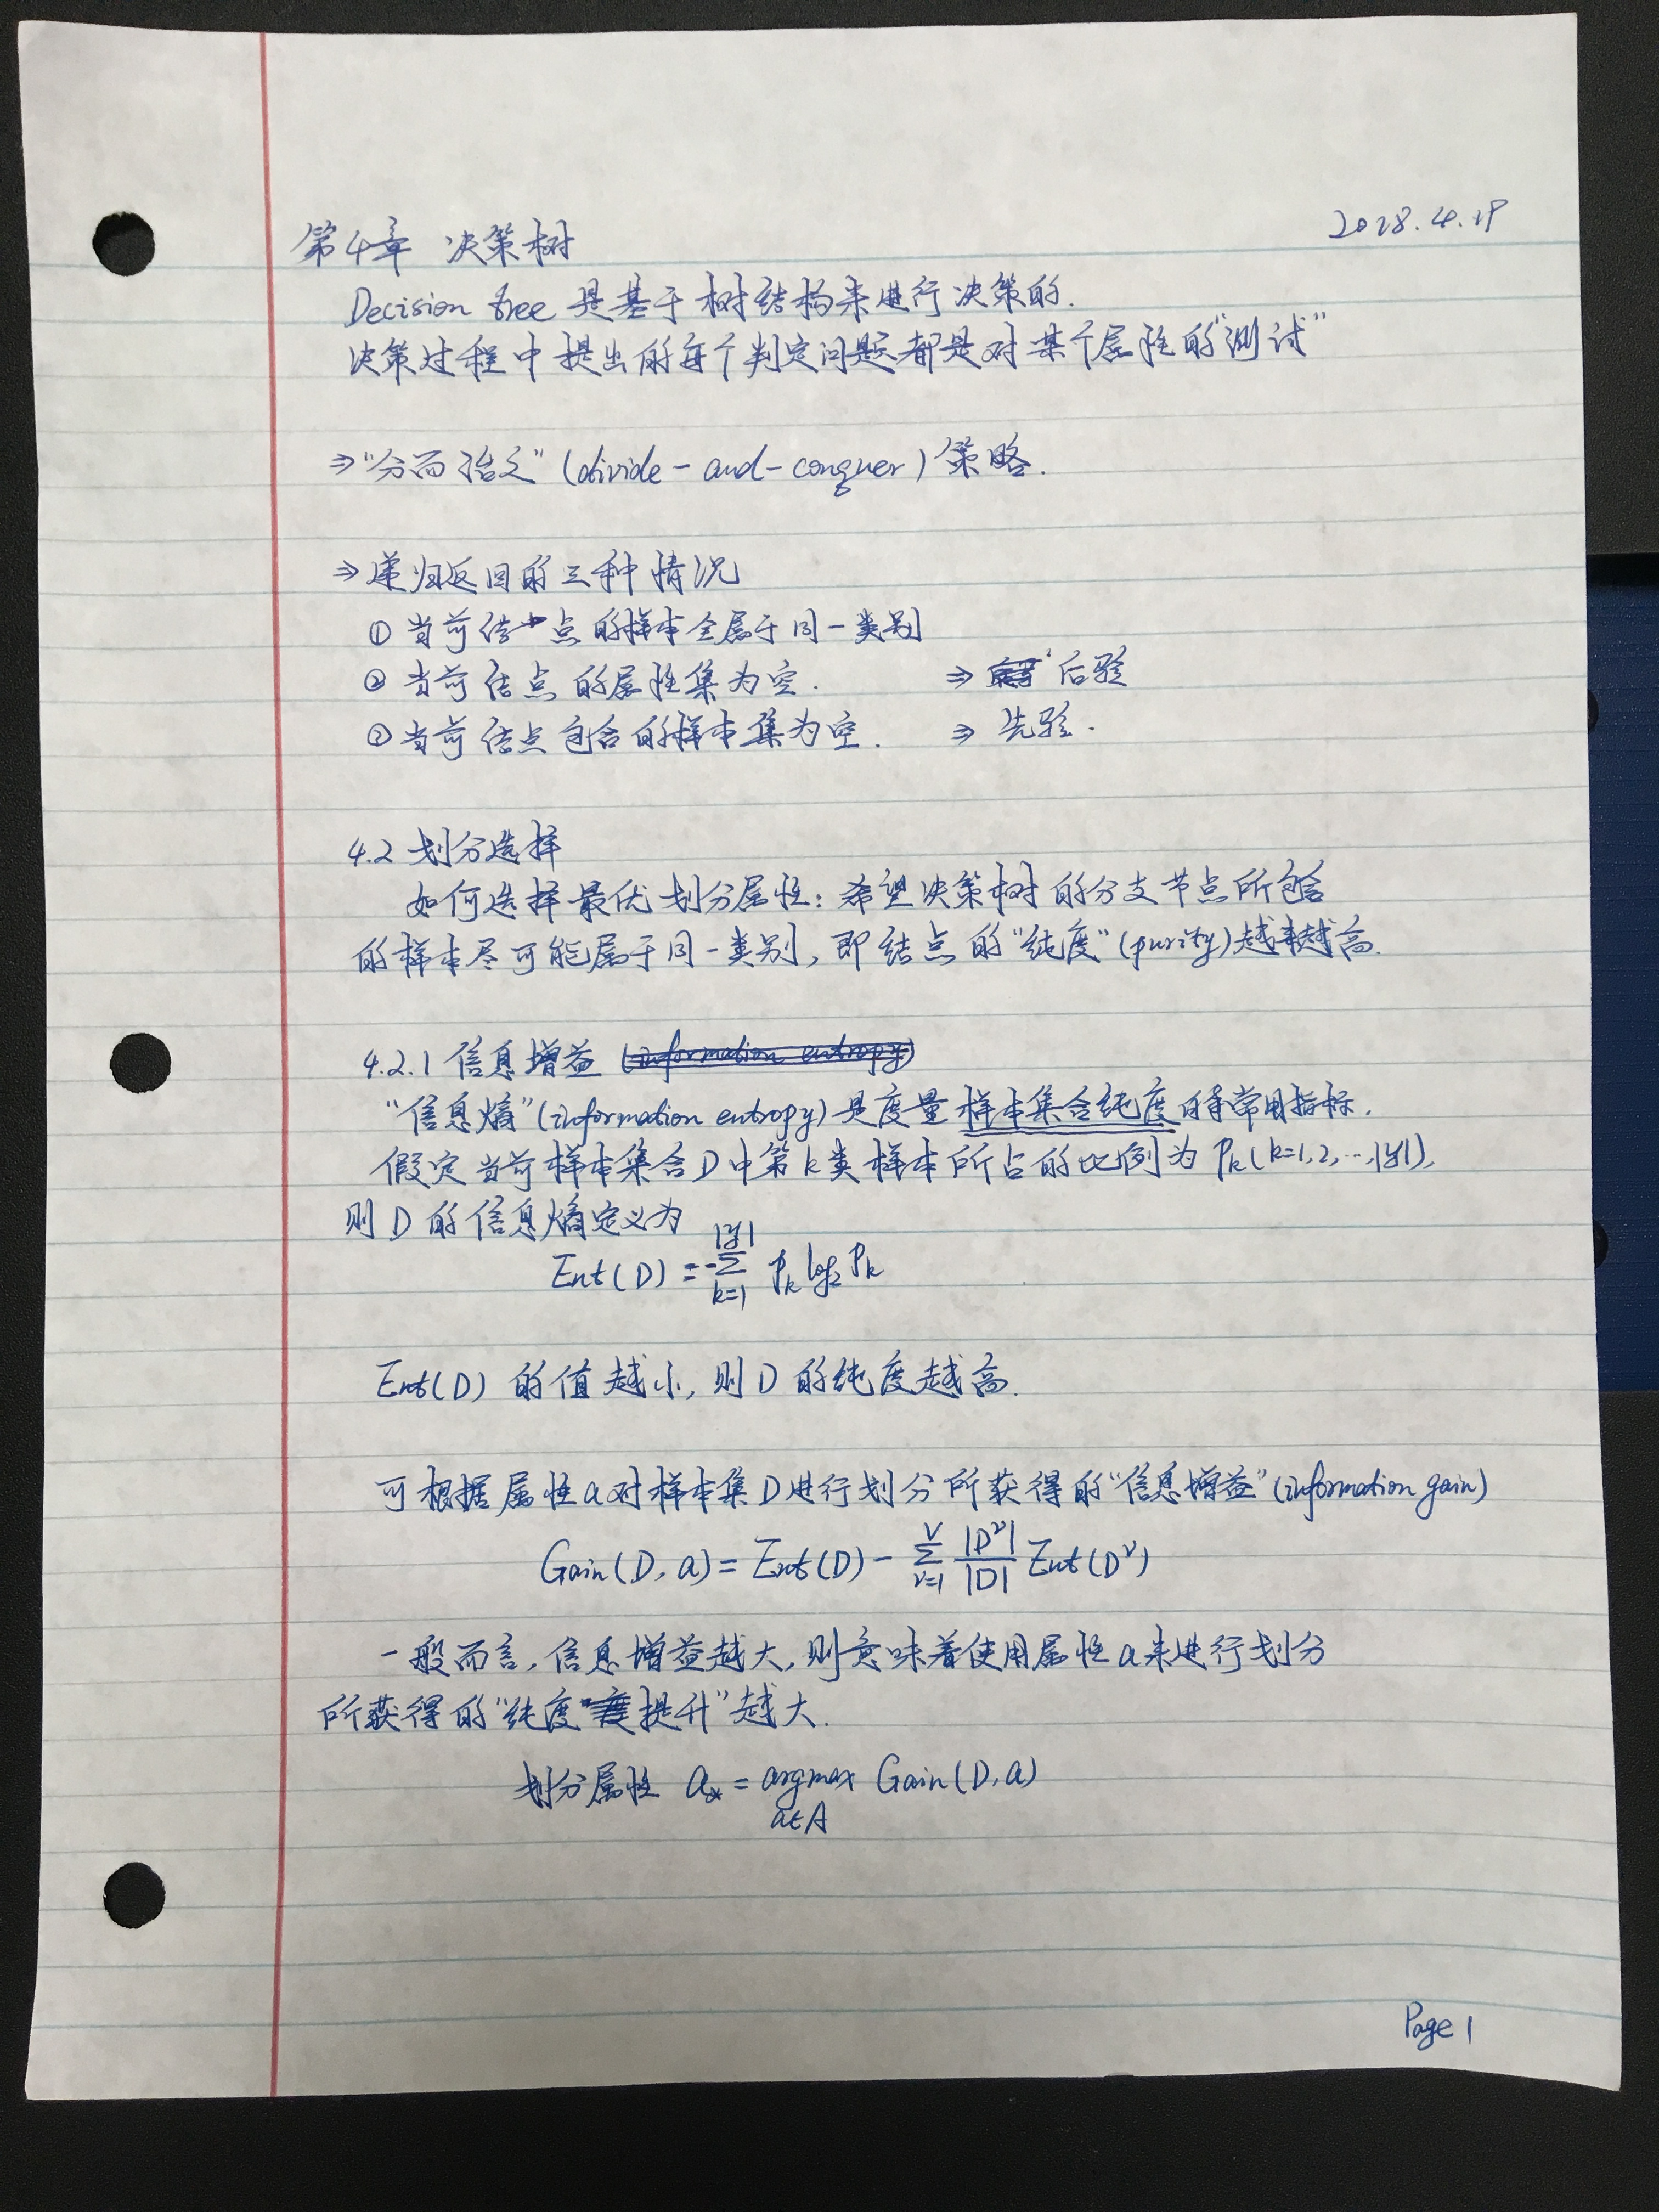 2018.4.19
第4章 决策树
Decision tree 是基于树结构来进行决策的.
决策过程中提出的每个判定问题都是对某个属性的“测试”
⇒“分而治之”(divide-and-conquer)策略.
⇒递归返回的三种情况
① 当前结点的样本全属于同一类别
② 当前结点的属性集为空. ⇒ 后验
③ 当前结点包含的样本集为空. ⇒ 先验.
4.2 划分选择
如何选择最优划分属性: 希望决策树的分支节点所包含
的样本尽可能属于同一类别, 即结点的“纯度”(purity)越来越高.
4.2.1 信息增益 (information entropy)
“信息熵”(information entropy)是度量样本集合纯度的常用指标.
假定当前样本集合D中第k类样本所占的比例为 Pk(k=1,2,…,|y|),
则D的信息熵定义为
Ent(D) = -∑_{k=1}^{|y|} Pk log2 Pk
Ent(D) 的值越小, 则D的纯度越高.
可根据属性a对样本集D进行划分所获得的“信息增益”(information gain)
Gain(D,a) = Ent(D) - ∑_{v=1}^{V} |D^v|/|D| Ent(D^v)
一般而言, 信息增益越大, 则意味着使用属性a来进行划分
所获得的“纯度提升”越大.
划分属性 a* = argmax Gain(D,a)
a∈A
Page 1